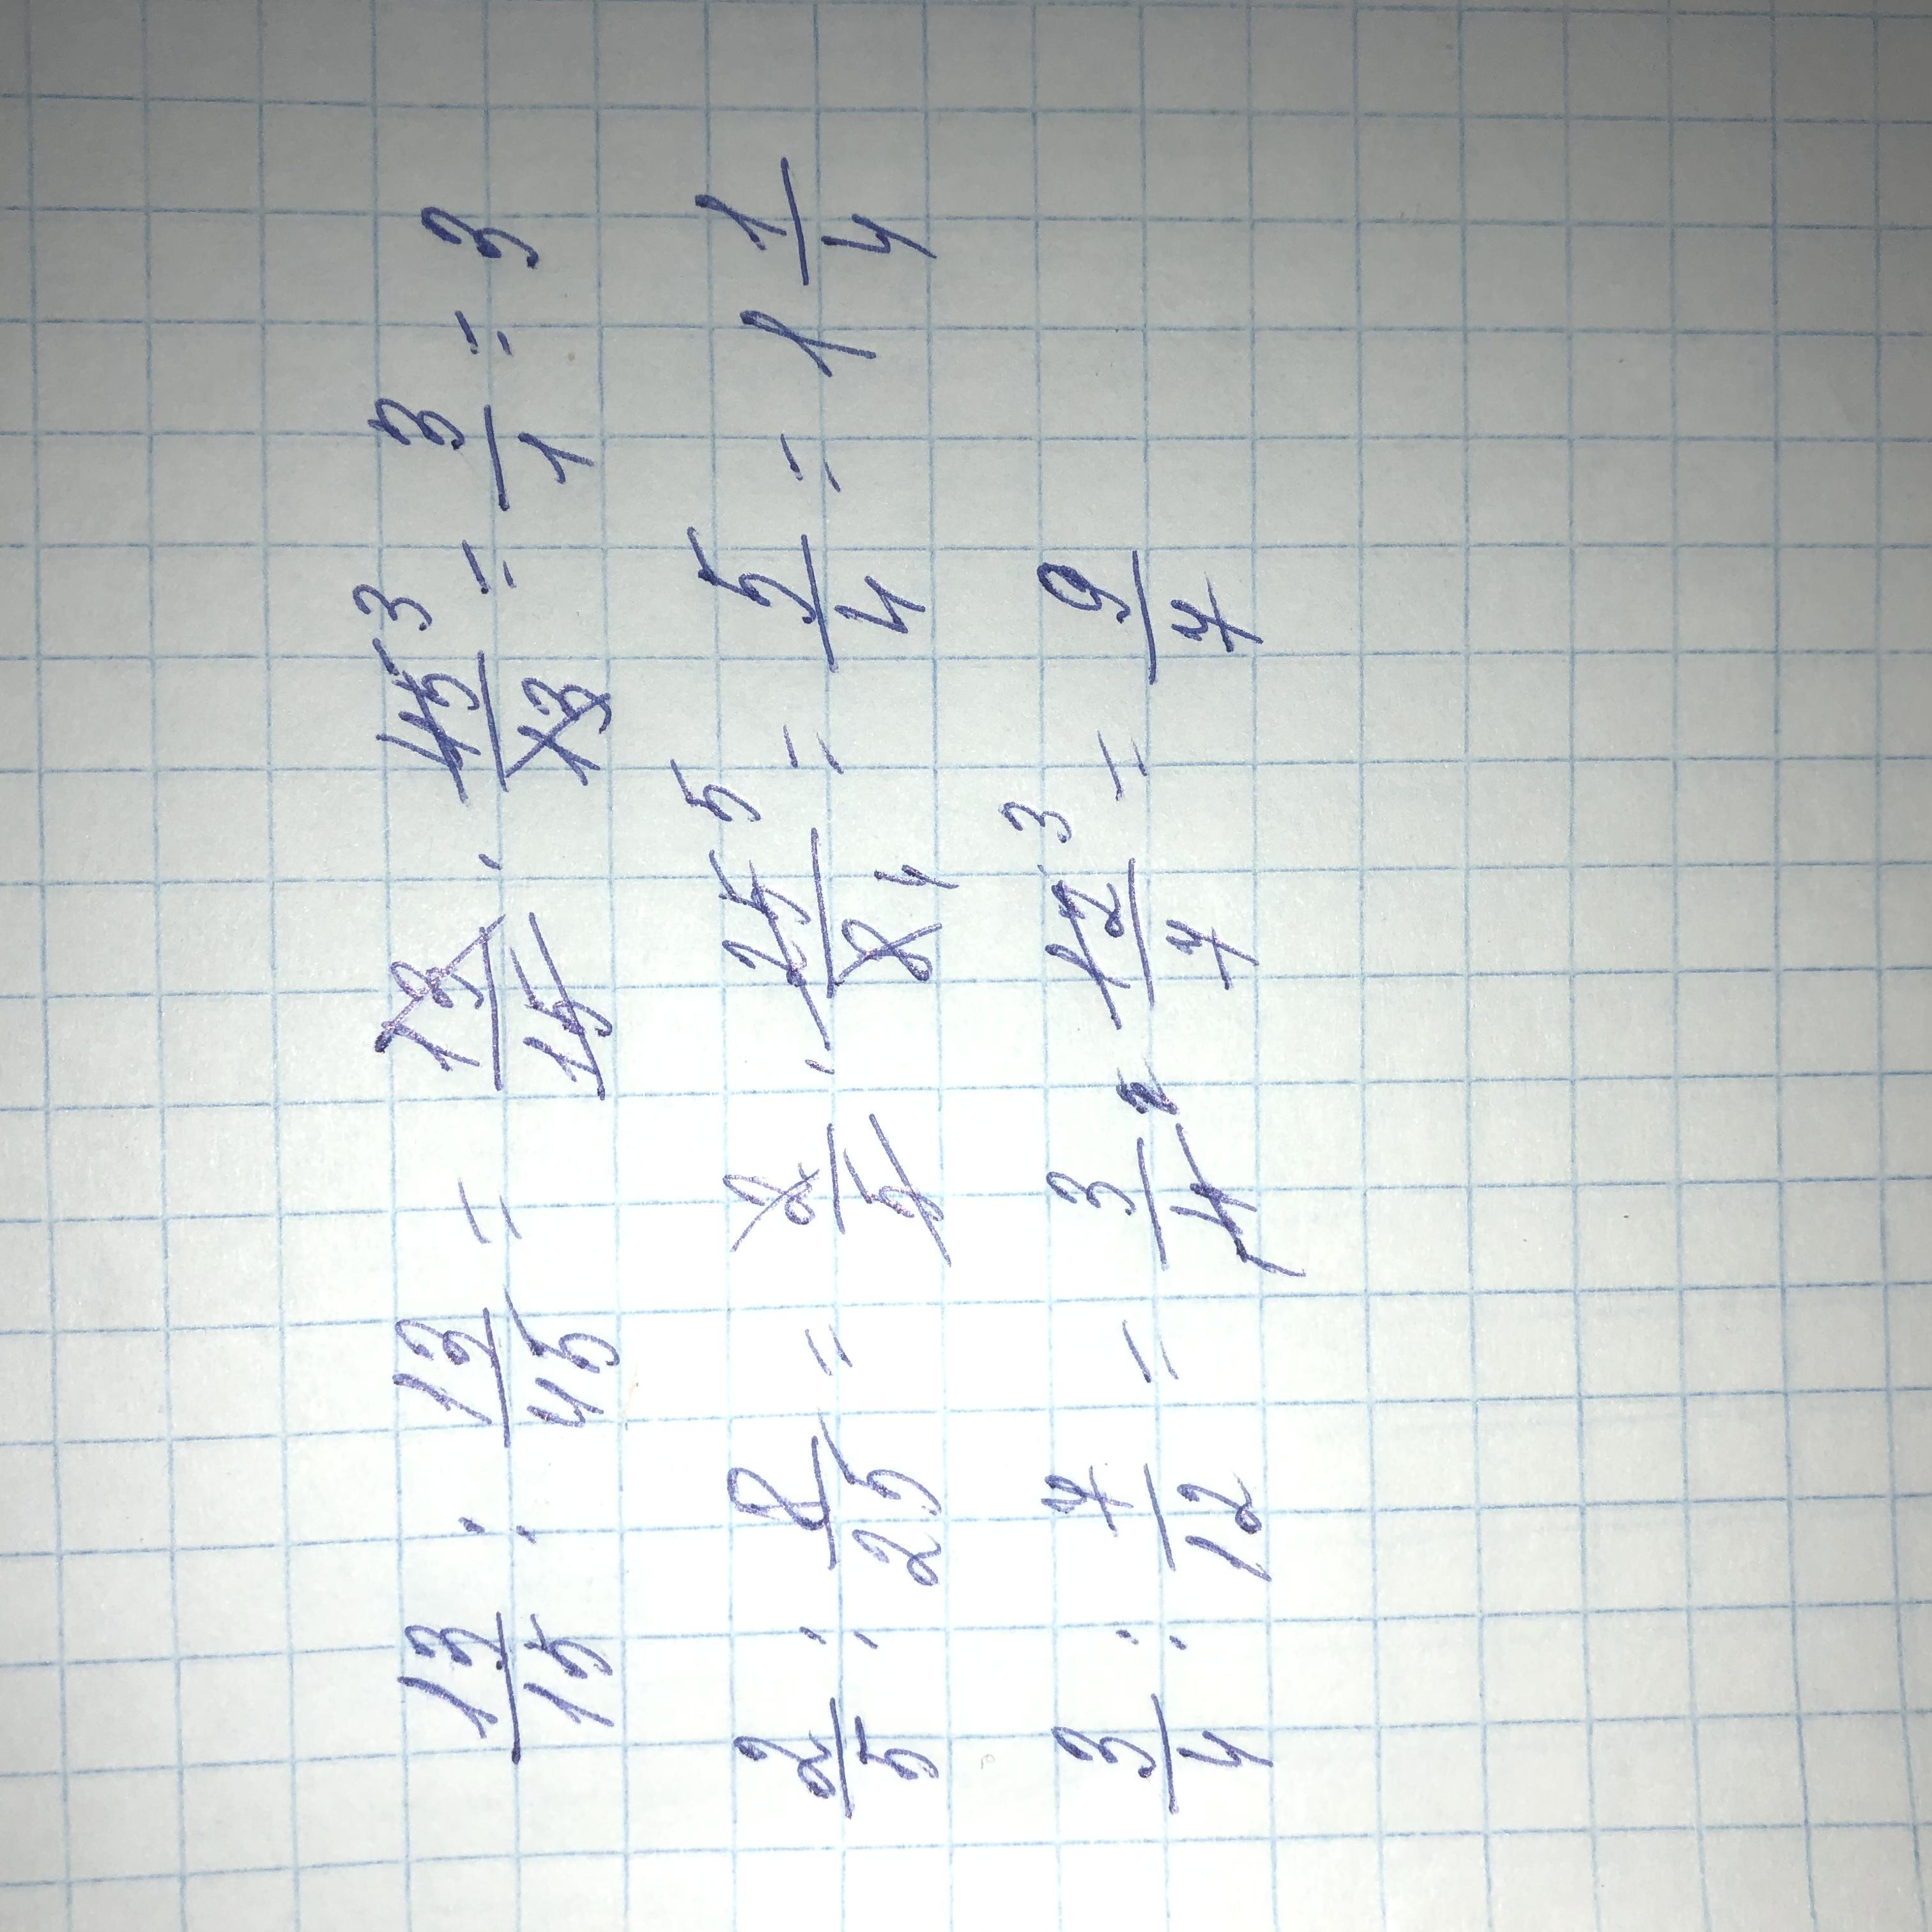 13/15 : 13/45 = 13/15 · 45/13 3 = 3/1 = 3
2/5 : 8/25 = 2/5 · 25/8 5 4 = 5/4 = 1 1/4
3/4 : 7/12 = 3/4 · 12/7 3 = 9/7